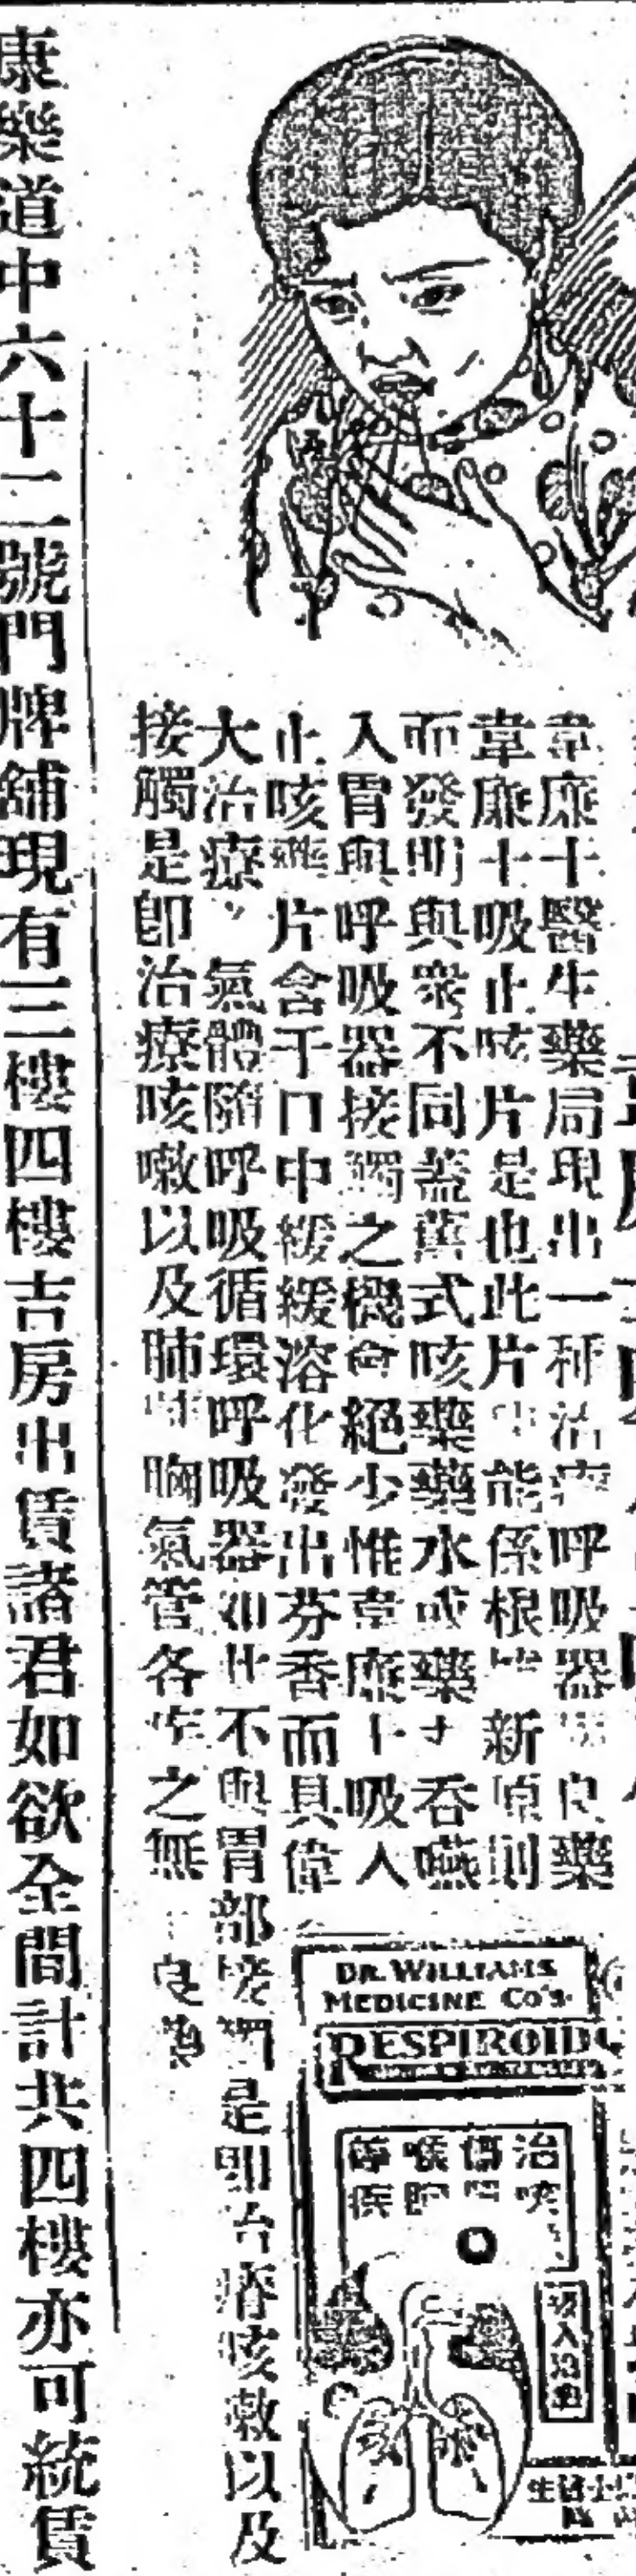 韋廉士醫生藥局現出一種治療呼吸器良藥
韋廉士吸止咳片是也此片功能係根新原則
而發明與衆不同蓋舊式咳藥藥水或藥片吞嚥
入胃與呼吸器接觸之機會絕少惟韋廉士吸入
止咳藥片含于口中緩緩溶化發出芬香而具偉
大治療,氣體隨呼吸循環呼吸器如此不與胃部接觸是卽治療咳嗽以及
接觸是卽治療咳嗽以及肺胸氣管各之無良
DR. WILLIAMS
MEDICINE CO'S.
RESPIROIDS
治咳
喉
吸入
康樂道中六十二號門牌舖現有三樓四樓吉房出賃諸君如欲全間計共四樓亦可統賃